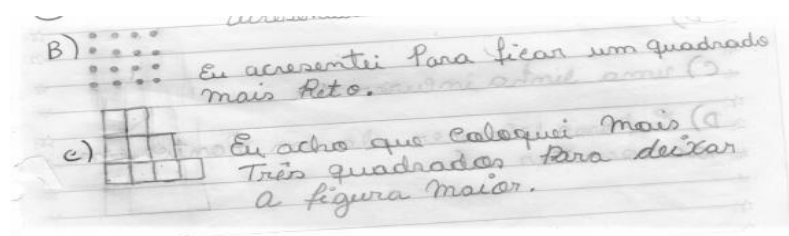 B) Eu acresentei Para ficar um quadrado
mais Reto.
c) Eu acho que coloquei mais
Três quadrados Para deixar
a figura maior.